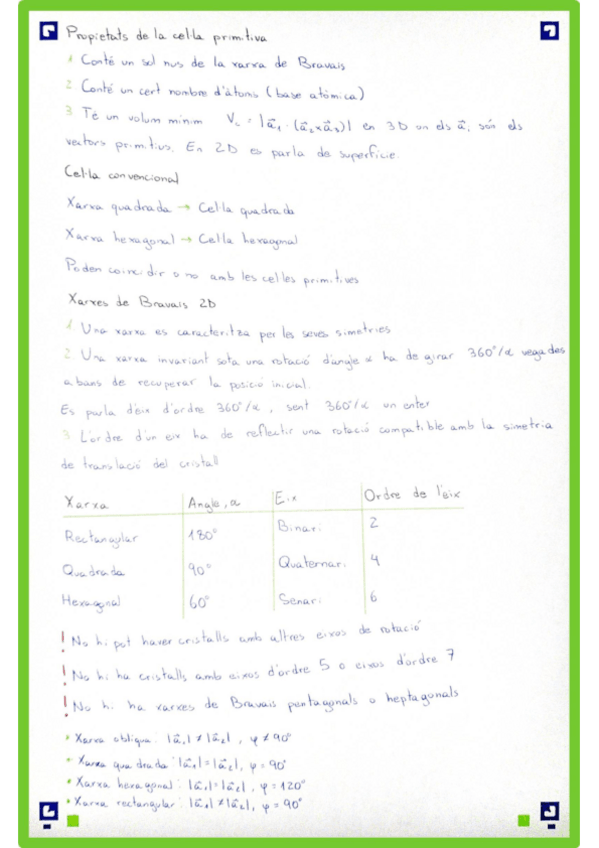 Propietats de la cel·la primitiva
1 Conté un sol nus de la xarxa de Bravais
2 Conté un cert nombre d'àtoms (base atòmica)
3 Té un volum mínim Vc = |a⃗₁ · (a⃗₂ x a⃗₃)| en 3D on els a⃗ᵢ són els
vectors primitius. En 2D es parla de superfície.
Cel·la convencional
Xarxa quadrada → Cel·la quadrada
Xarxa hexagonal → Cel·la hexagonal
Poden coincidir o no amb les cel·les primitives
Xarxes de Bravais 2D
1. Una xarxa es caracteritza per les seves simetries
2. Una xarxa invariant sota una rotació d'angle α ha de girar 360°/α vegades
abans de recuperar la posició inicial.
Es parla d'eix d'ordre 360°/α, sent 360°/α un enter
3. L'ordre d'un eix ha de reflectir una rotació compatible amb la simetria
de translació del cristall
Xarxa Angle, α Eix Ordre de l'eix
Rectangular 180° Binari 2
Quadrada 90° Quaternari 4
Hexagonal 60° Senari 6
! No hi pot haver cristalls amb altres eixos de rotació
! No hi ha cristalls amb eixos d'ordre 5 o eixos d'ordre 7
! No hi ha xarxes de Bravais pentagonals o heptagonals
• Xarxa obliqua: |a⃗₁| ≠ |a⃗₂|, φ ≠ 90°
• Xarxa quadrada: |a⃗₁| = |a⃗₂|, φ = 90°
• Xarxa hexagonal: |a⃗₁| = |a⃗₂|, φ = 120°
• Xarxa rectangular: |a⃗₁| ≠ |a⃗₂|, φ = 90°